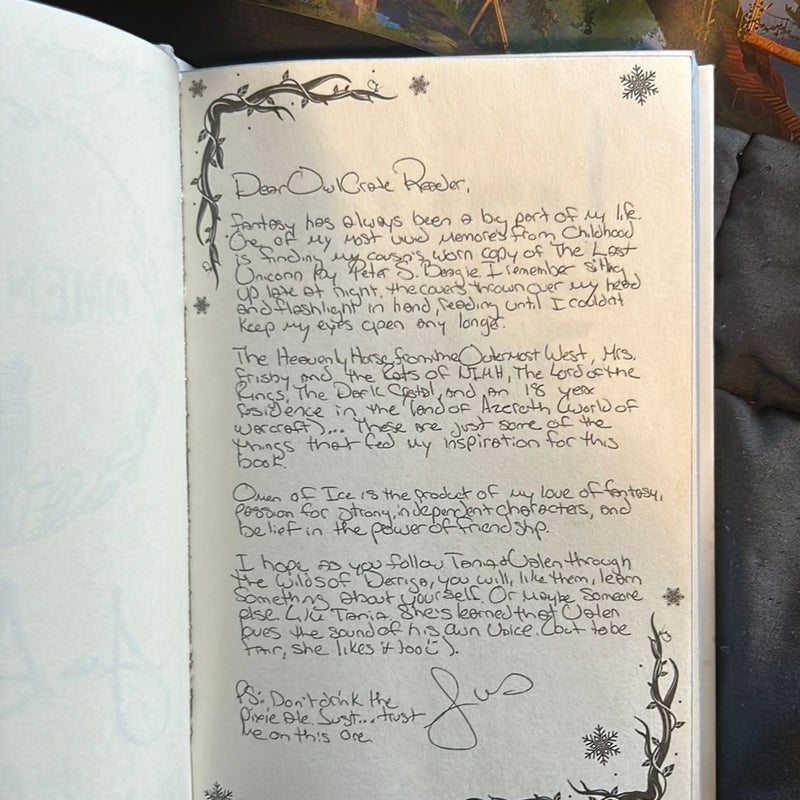 Dear OwlCrate Reader,
Fantasy has always been a big part of my life.
One of my most vivid memories from childhood
is finding my cousin's worn copy of The Last
Unicorn by Peter S. Beagle. I remember sitting
up late at night, the covers thrown over my head
and flashlight in hand, reading until I couldn't
keep my eyes open any longer.
The Heavenly Horse from the Outermost West, Mrs.
Frisby and the Rats of NIMH, The Lord of the
Rings, The Dark Crystal, and an 18 year
residence in the land of Azeroth (World of
Warcraft)... These are just some of the
things that fed my inspiration for this
book.
Queen of Ice is the product of my love of fantasy,
passion for strong, independent characters, and
belief in the power of friendship.
I hope as you follow Tania & Valen through
the wilds of Derriga, you will, like them, learn
something about yourself. Or maybe someone
else. Like Tania. She's learned that Valen
loves the sound of his own voice. (but to be
fair, she likes it too ).
PS: Don't drink the
Pixie Ale. Just... trust
me on this one.